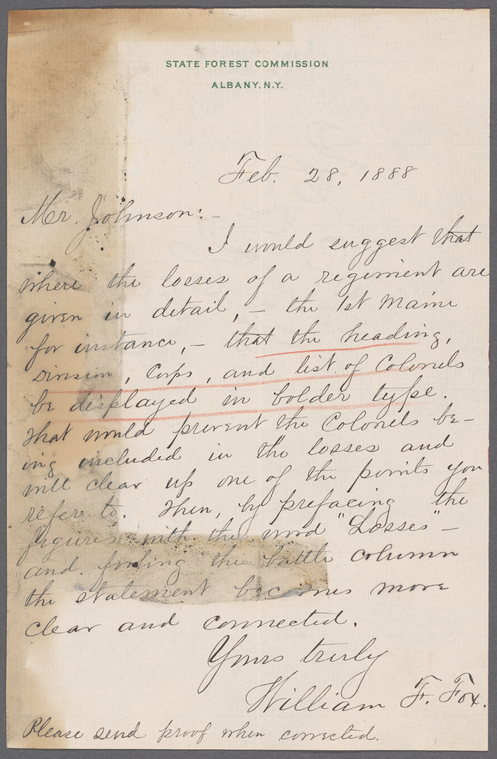 STATE FOREST COMMISSION
ALBANY. N.Y.
Feb. 28, 1888
Mr Johnson:-
I would suggest that
where the losses of a regiment are
given in detail, - the 1st Maine
for instance, - that the heading,
Division, Corps, and list of Colonels
be displayed in bolder type.
That would prevent the Colonels be-
ing included in the losses and
will clear up one of the points you
refer to. Then, by prefacing the
figures with the word "Losses" -
and footing the battle column
the statement becomes more
clear and connected.
Yours truly
William F. Fox.
Please send proof when corrected.